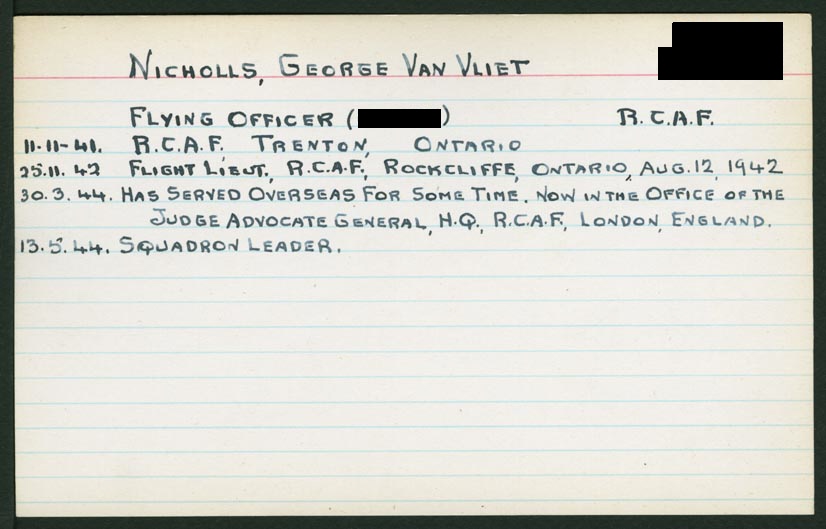 NICHOLLS, GEORGE VAN VLIET
FLYING OFFICER ( ) R.C.A.F.
11-11-41. R.C.A.F. TRENTON, ONTARIO
25.11.42 FLIGHT LIEUT., R.C.A.F., ROCKCLIFFE, ONTARIO, AUG. 12, 1942
30.3.44. HAS SERVED OVERSEAS FOR SOME TIME. NOW IN THE OFFICE OF THE
JUDGE ADVOCATE GENERAL, H.Q., R.C.A.F., LONDON, ENGLAND.
13.5.44. SQUADRON LEADER.